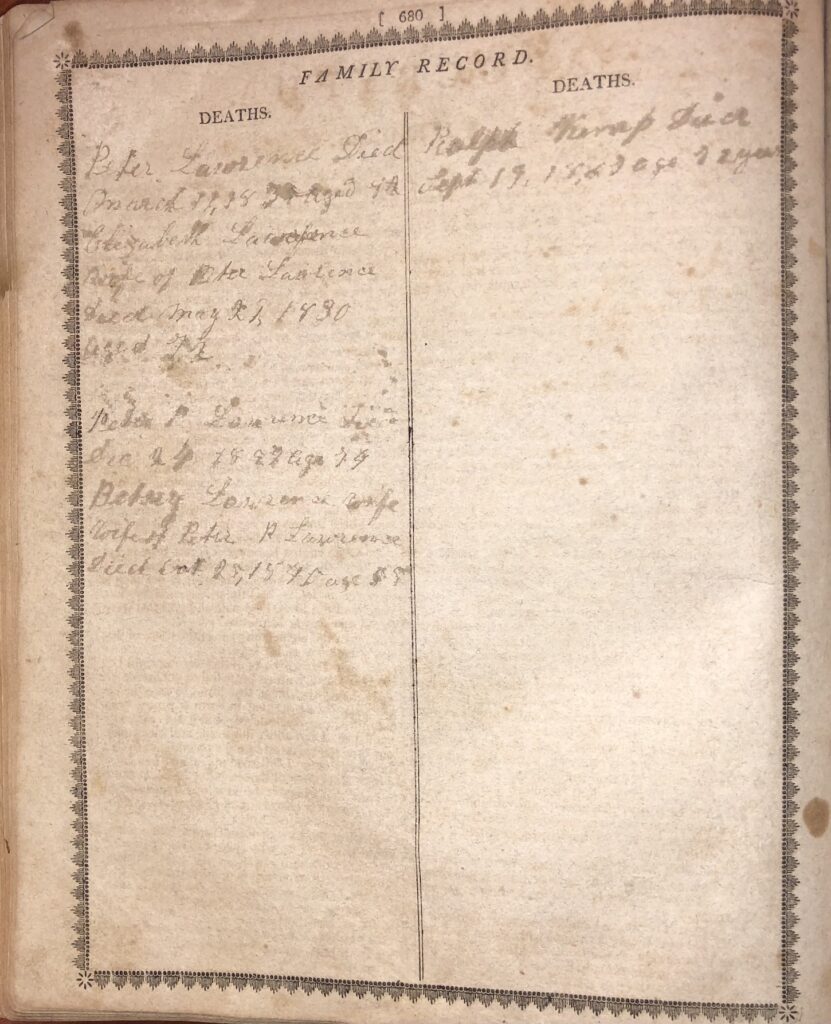 [ 680 ]
FAMILY RECORD.
DEATHS.
Peter Lawrence Died
March 11, 18 aged
Elizabeth Lawrence
Wife of Peter Lawrence
Died May 27, 1830
aged 72
Peter P. Lawrence Died
Dec 24 18 age 79
Betsey Lawrence wife
Wife of Peter P Lawrence
Died Oct 25, 18 age
DEATHS.
Ralph Kemp Died
Sept 19, age 72 year